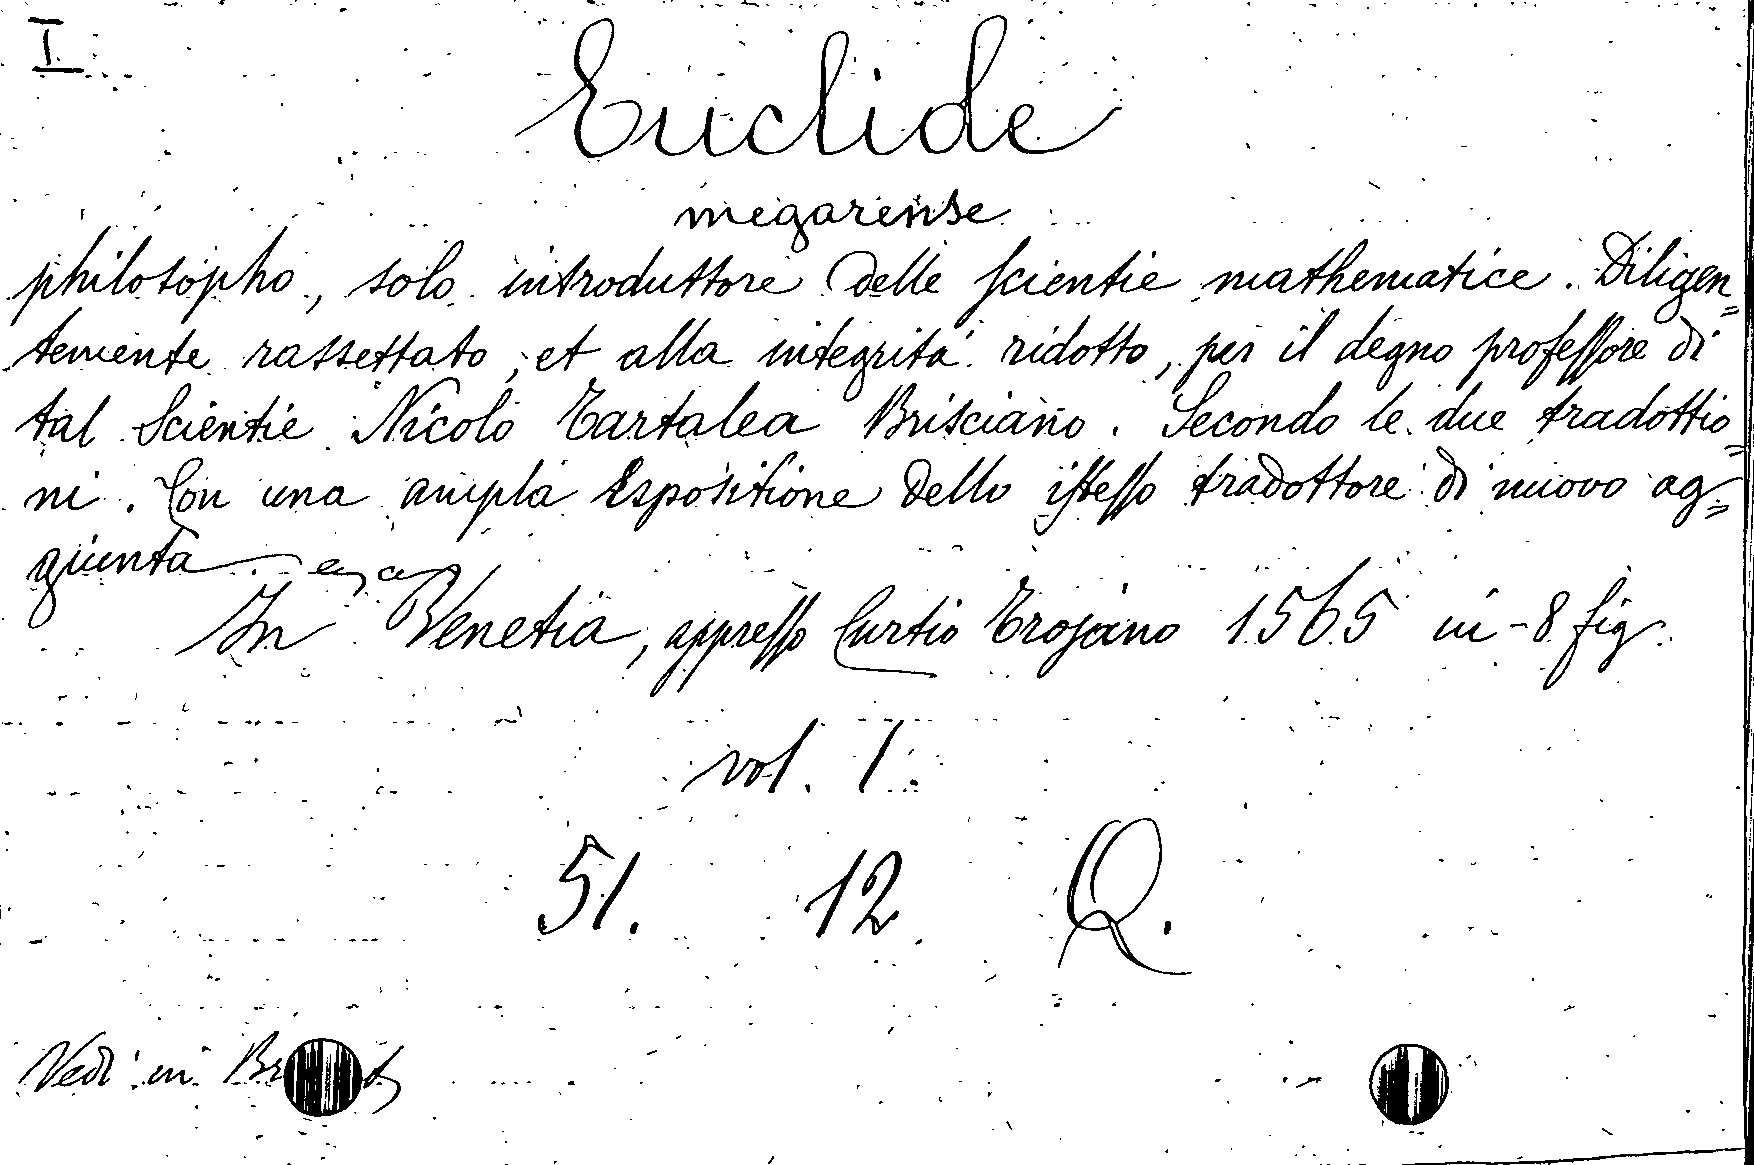 I
Euclide
megarense
philosopho, solo introduttore delle scientie mathematice. Diligen=
temente rassettato, et alla integrità ridotto, per il degno professore di
tal Scientie Nicolo Tartalea Brisciano. Secondo le due tradottio=
ni. Con una ampla espositione dello istesso tradottore di nuovo ag=
giunta
In Venetia, appresso Curtio Trojano 1565 in-8 fig.
vol. 1.
51. 12 Q.
Vedi in